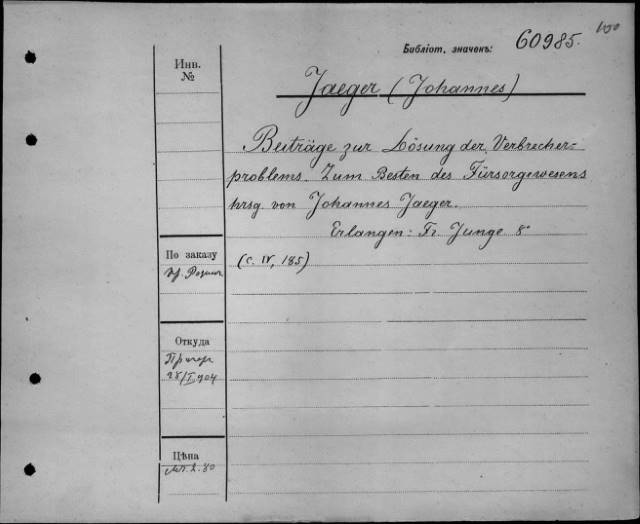 Библіот. значекъ: 60985.
Инв.
№
Jaeger (Johannes)
Beiträge zur Lösung der Verbrecher-
problems. Zum Besten des Fürsorgewesens
hrsg. von Johannes Jaeger.
Erlangen: Fr. Junge 8°
По заказу
(c. IV, 185)
Откуда
28/I 904
Цѣна